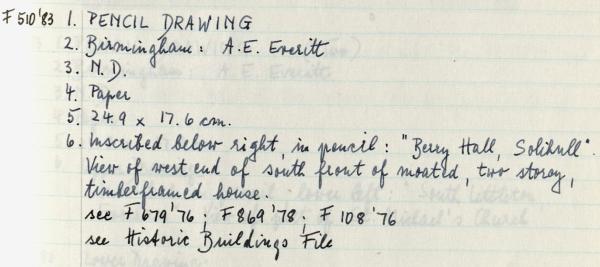 F510'83 1. PENCIL DRAWING
2. Birmingham: A.E. Everitt
3. N.D.
4. Paper
5. 24.9 x 17.6 cm.
6. Inscribed below right, in pencil: "Berry Hall, Solihull".
View of west end of south front of moated, two storey,
timberframed house.
see F679'76; F869'78; F108'76
see Historic Buildings File